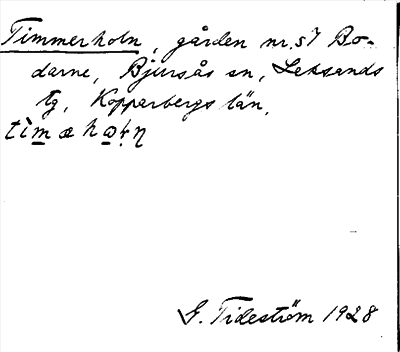 Timmerholn, gården nr. 57 Bo-
darne, Bjursås sn, Leksands
tg, Kopparbergs län.
G. Tideström 1928